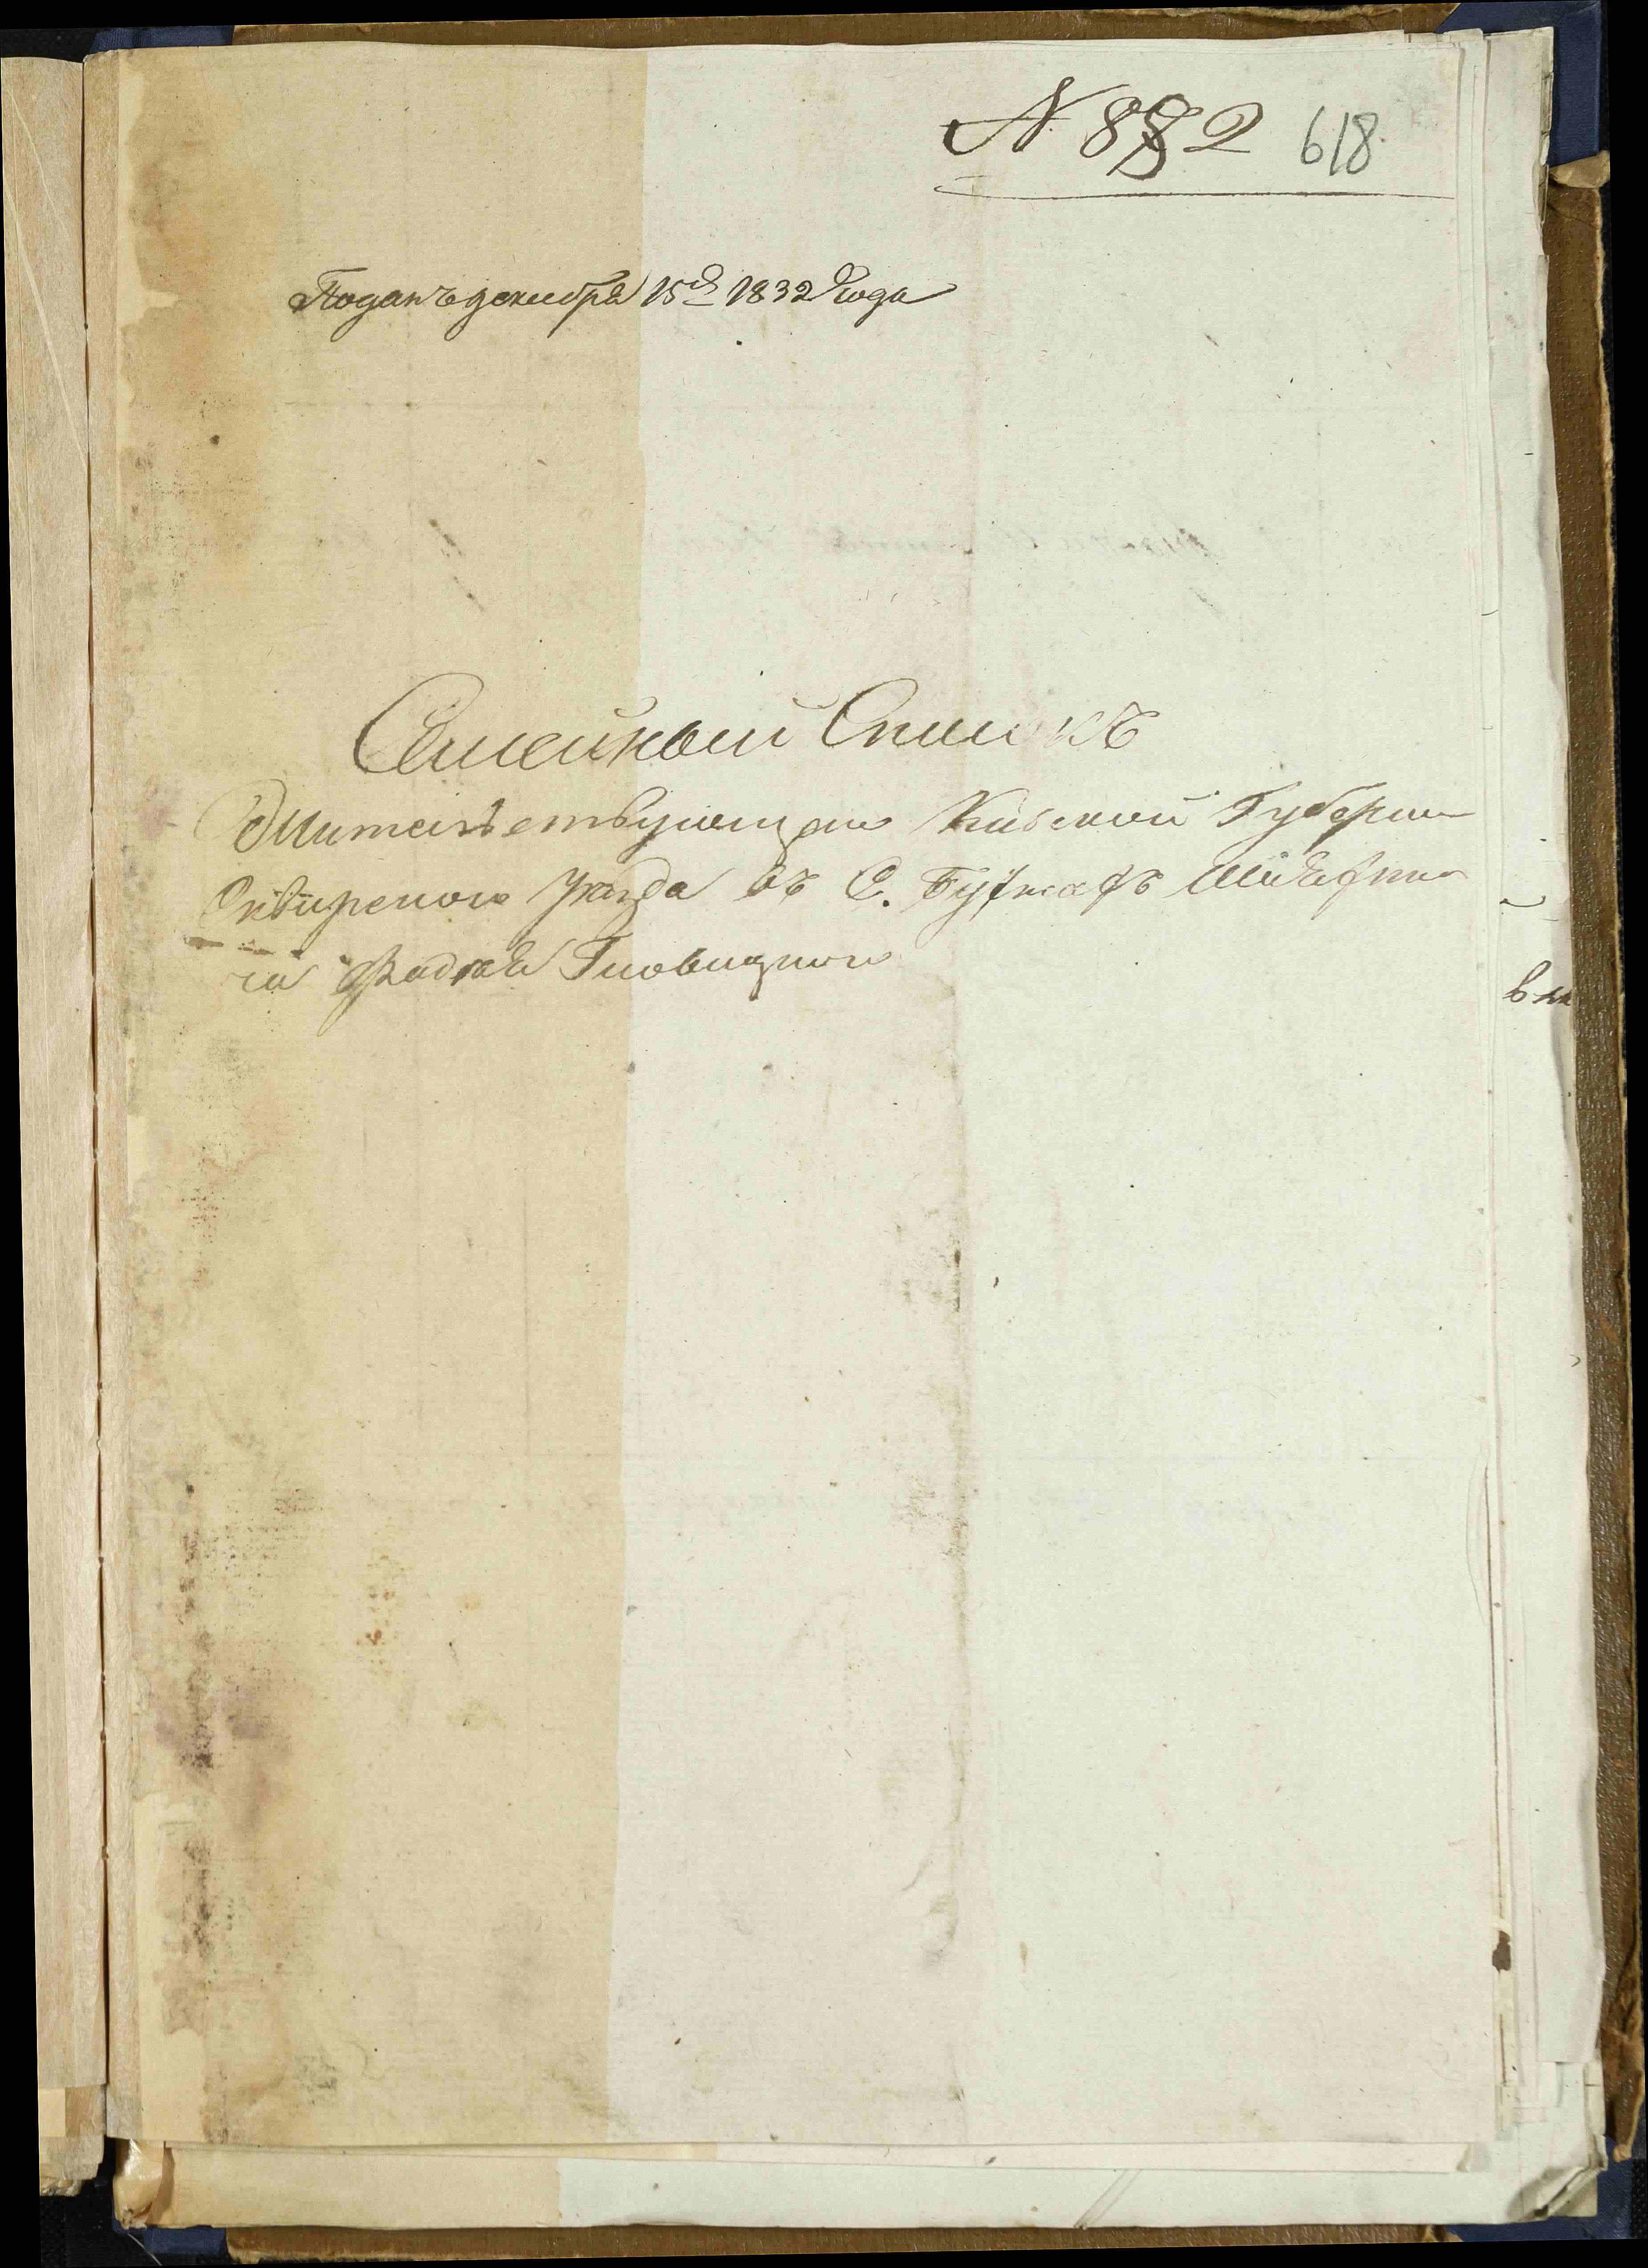 N. 882 618.
Поданъ декабря 15го 1832 Года
Семейный Списокъ
Жительствующаго Кіевской Губерніи
Сквирскаго Уѣзда въ С. Буркахъ Шляхти
ча Фадѣя Гновицкого